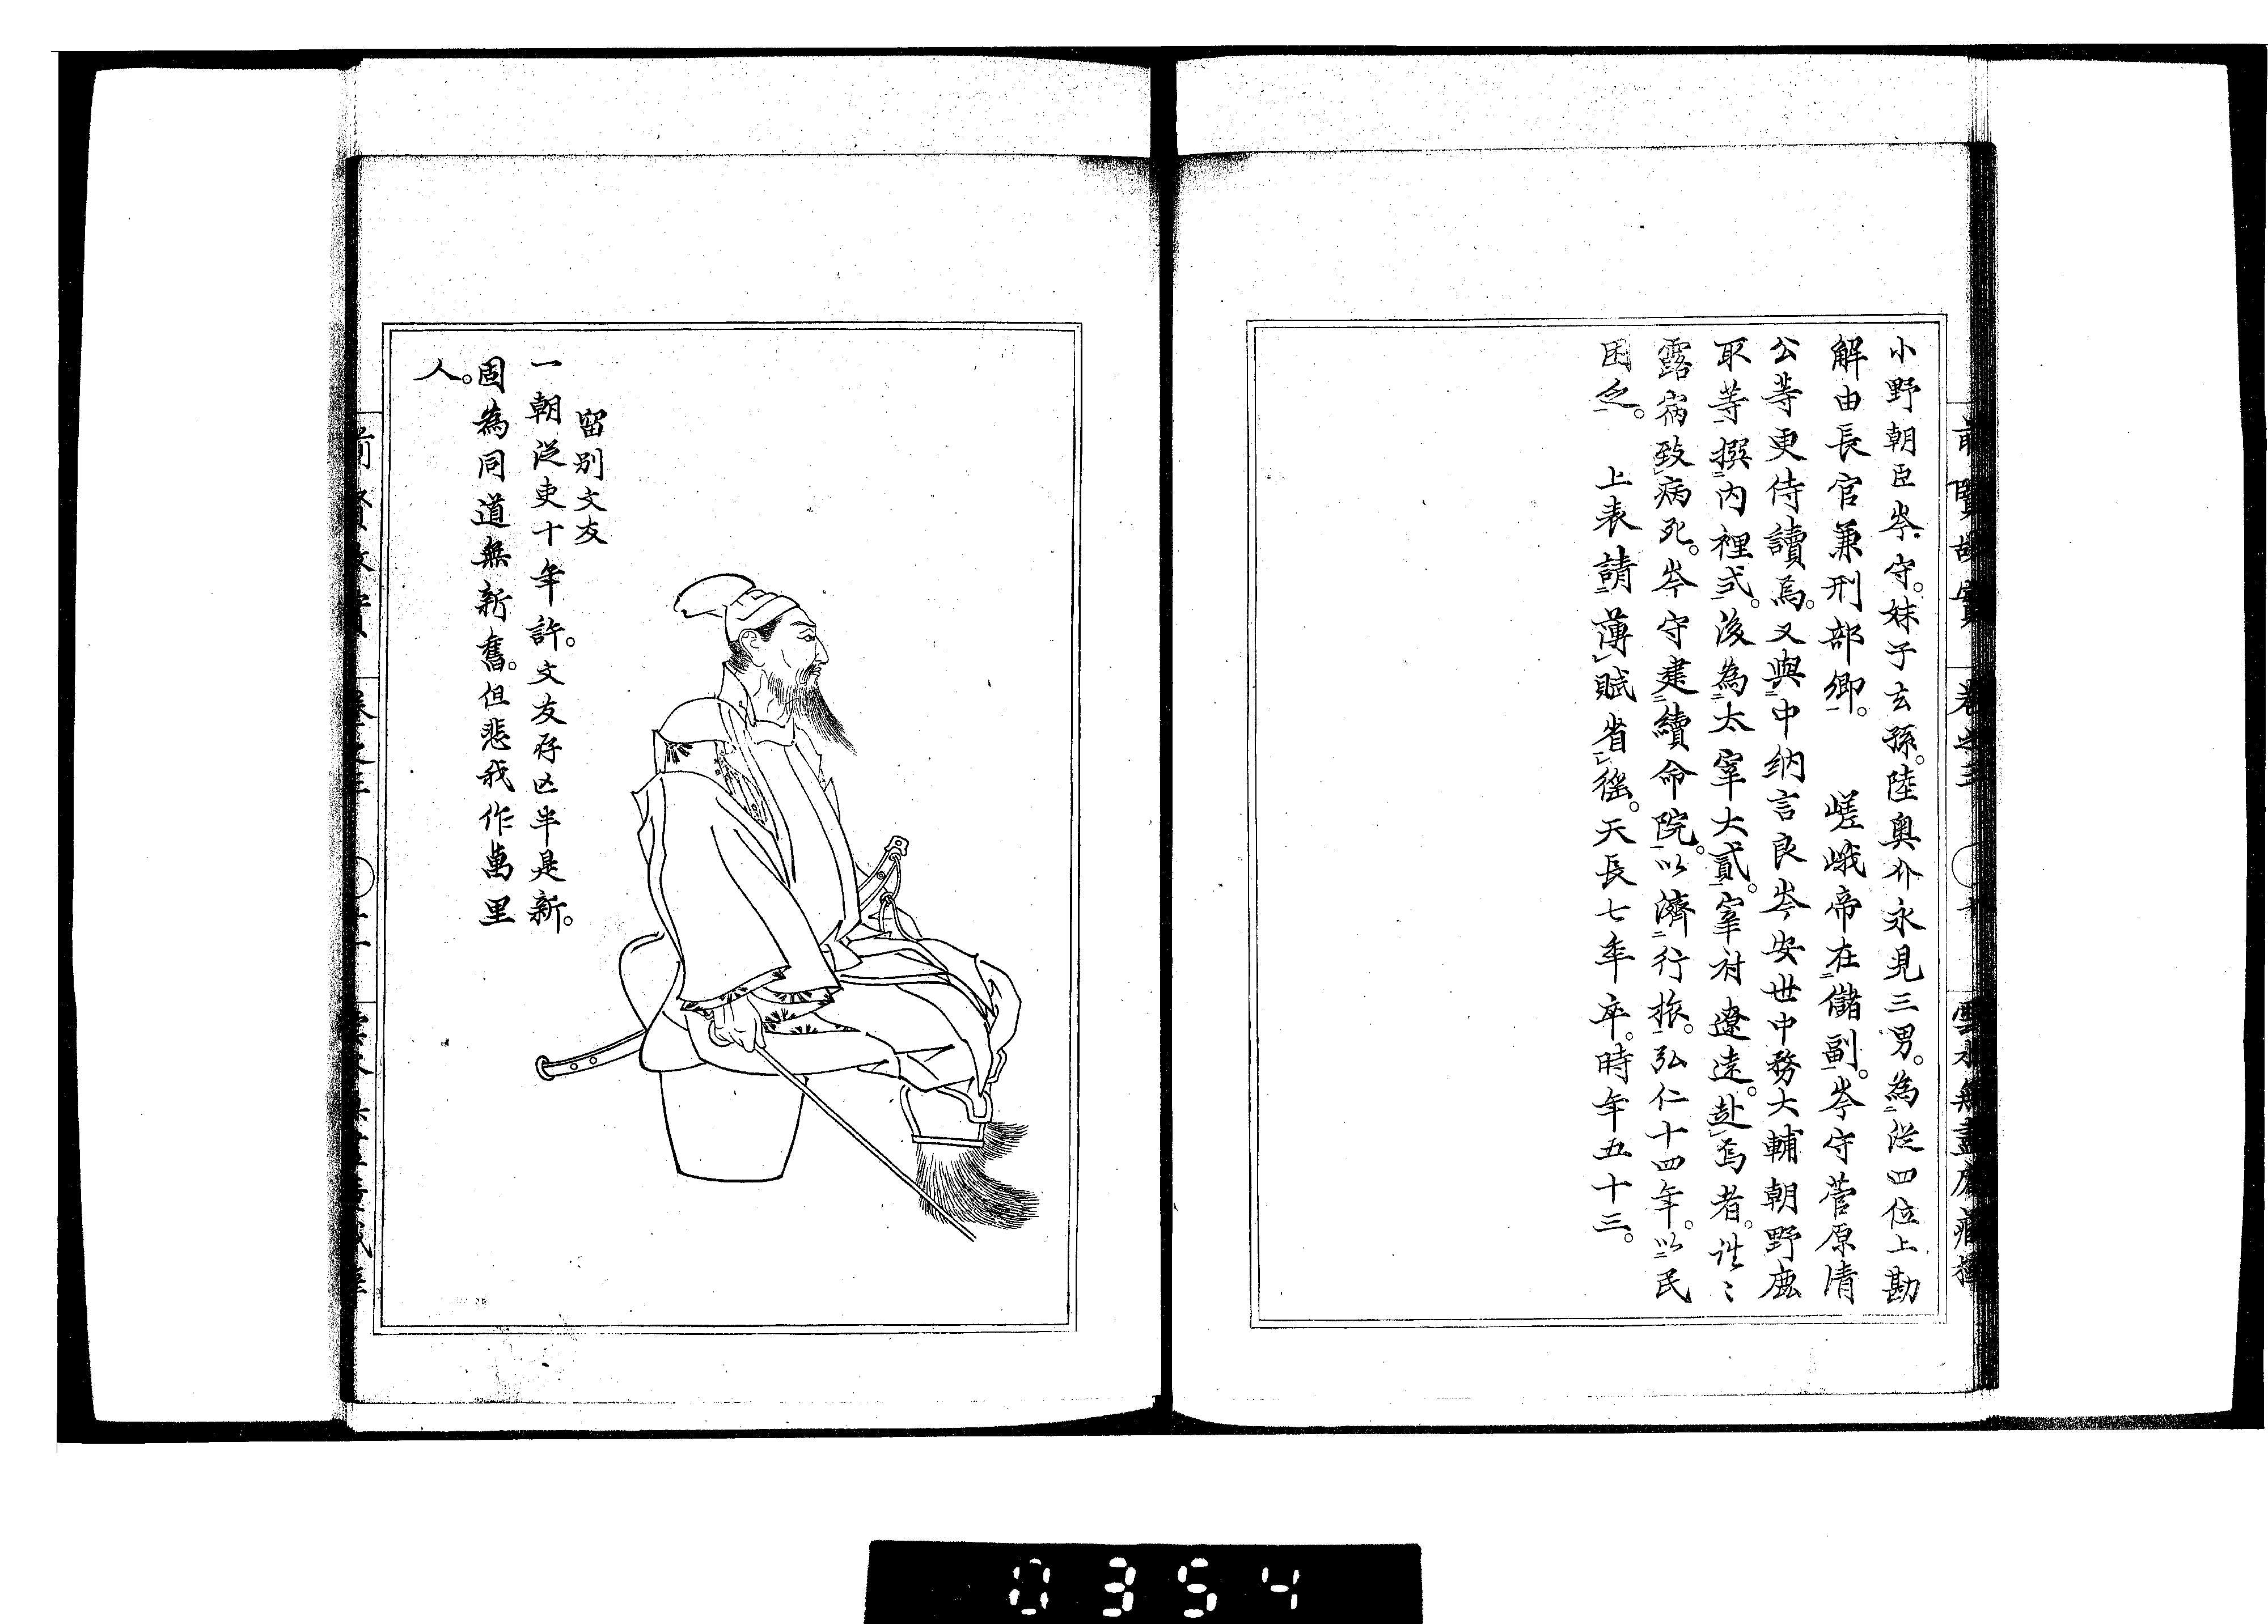 小野朝臣岑守。妹子玄孫。陸奥介永見三男。為二從四位上勘
解由長官兼刑部卿一。　嵯峨帝在二儲副一。岑守菅原清
公等更侍讀焉。又與二中納言良岑安世中務大輔朝野鹿
取等一撰二内裡式一。後為二太宰大貳一。宰府遼遠。赴レ焉者。往〻
露病致レ病死。岑守建二續命院一。以濟二行旅一。弘仁十四年。以二民
困乏一。　上表請二薄レ賦省一レ徭。天長七年卒。時年五十三。
前賢故實　卷之三　十　雲水無盡庵藏
留別文友
一朝從吏十年許。文友存亡半是新。
固為同道無新舊。但悲我作萬里
人。
0354